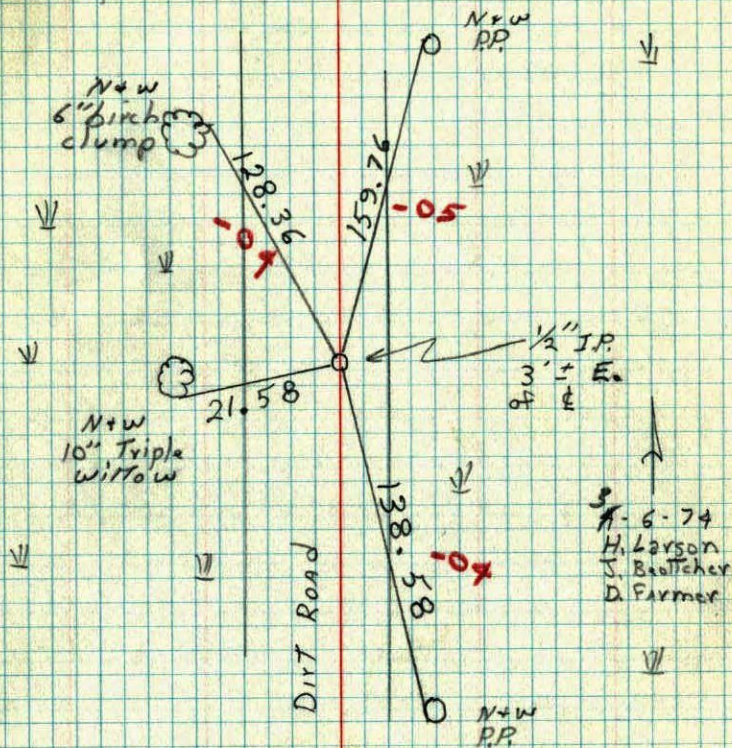 N+W
P.P.
N+W
6" birch
clump
128.36
-04
159.76
-05
1/2" I.P.
3' ± E.
of ℄
21.58
N+W
10" Triple
willow
138.58
-04
3
-6-74
H. Larson
J. Brottcher
D. Farmer
Dirt Road
N+W
P.P.